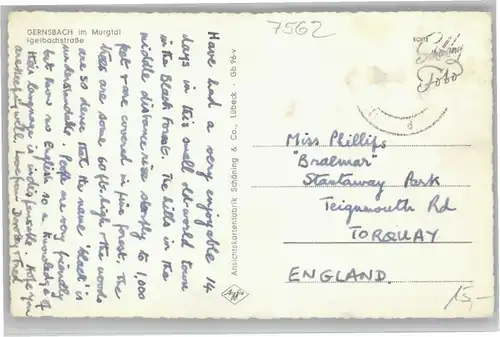 GERNSBACH im Murgtal
Igelbachstraße
7562
ECHTE
Schöning
Foto
Have had a very enjoyable 14
days in this small old-world town
in the Black Forest. The hills in the
middle distance rise steeply to 1,000
feet & are covered in pine forest. The
trees are some 60 ft. high & the woods
are so dense that the name 'black' is
understandable. People are very friendly
but know no English so a knowledge of
their language is indispensable. Hope you
are keeping well. Love from Dorothy & Fred
Ansichtskartenfabrik Schöning & Co., Lübeck - Gb 96-v
Agfa
Miss Phillips
"Braemar"
Stantaway Park
Teignmouth Rd
TORQUAY
ENGLAND.
15,-